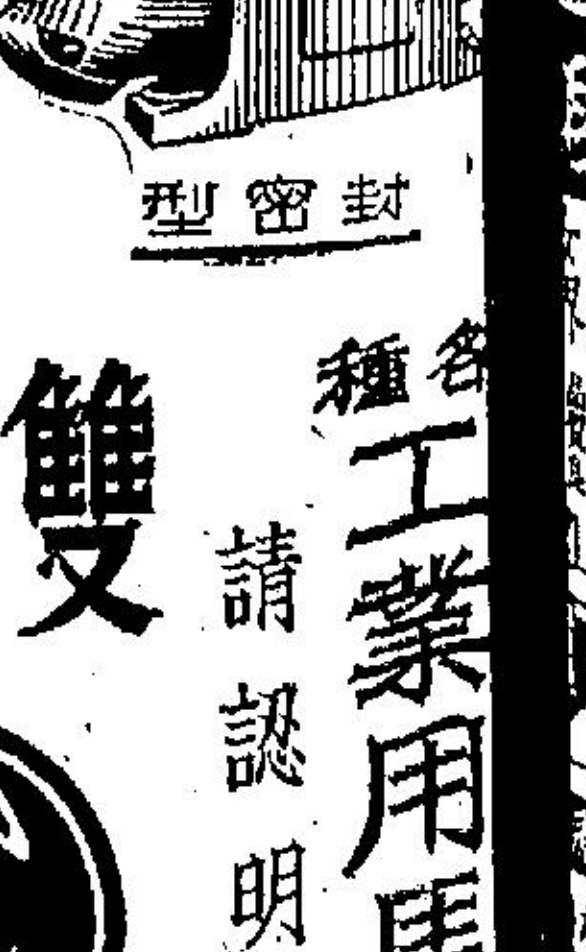 封密型
各種
工業用馬
請認明
雙